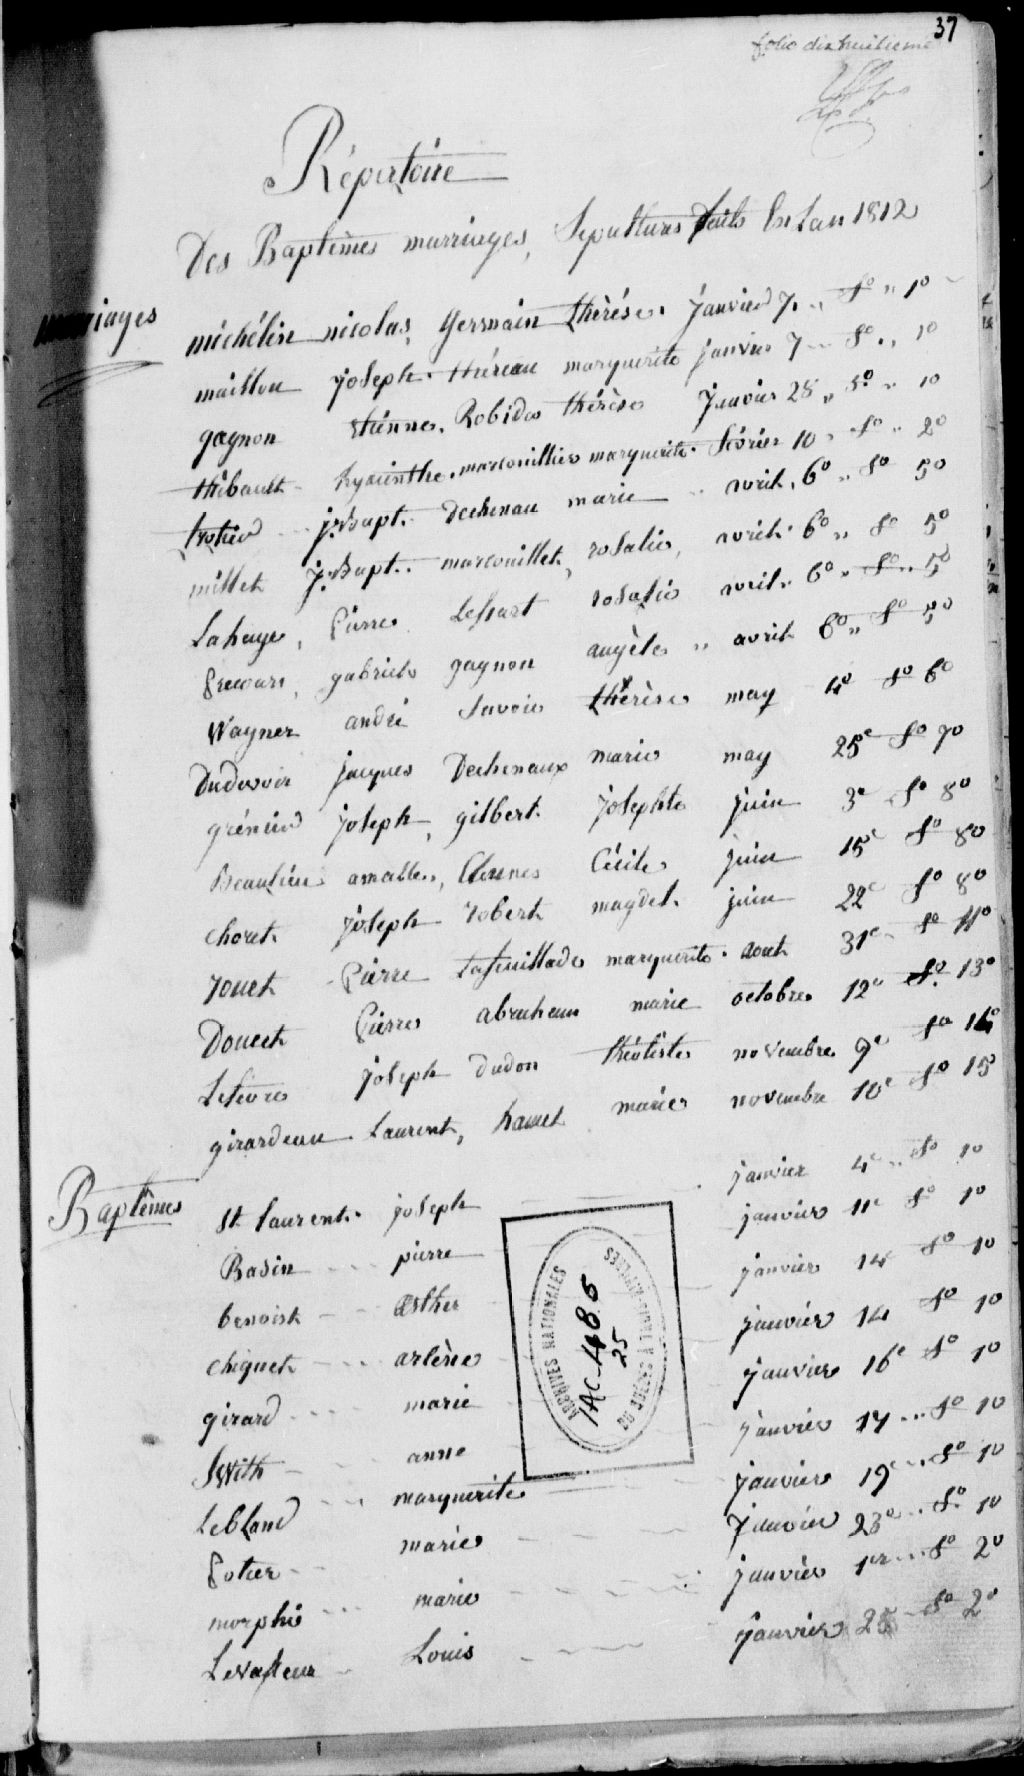 37
folio dixhuitieme
Répertoire
Des Baptêmes marriages, Sepultures faits En l'an 1812
marriages
michélin nicolas, Germain thérése. Janvier 7. „ fo „ 1o
maillou joseph. théreau marguerite janvier 7 „ fo „ 1o
gagnon étienne. Robida thérèse Janvier 28 „ fo „ 1o
thibault hyacinthe. marcouillier marguerite. février 10 „ fo „ 2o
trotier j. Bapt. dechenau marie avril. 6o „ fo 5o
millet J. Bapt. marcouillet, rosalie, avril 6o „ fo 5o
Lahaye, Pierre Lessart rosalie avril „ 6o „ fo „ 5o
Frecours, gabriel gagnon angèle „ avril 6o „ fo 5o
Wagner andré Savoie thérèse may 4o fo 6o
Dudevoir jacques Dechenaux marie may 25e fo 7o
grénier joseph, gilbert. josephte juin 3e fo 8o
Beaulieu amable, Cécile juin 15e fo 8o
choret joseph robert magdel. juin 22e fo 8o
Jouet Pierre Lafeuillade marguerite. aout 31e fo 11o
Doucet Pierre abraham marie octobre 12e fo. 13o
Lefevre joseph dudon théotiste novembre 9e fo 14o
girardeau Laurent, hamel marie novembre 10e fo 15
Baptêmes
St. Laurent. joseph janvier 4e „ fo 1o
Basin pierre janvier 11e fo 1o
benoist Esther janvier 14 fo 1o
chiquet arlène janvier 14 fo 1o
girard marie janvier 16e fo 1o
Smith anne janvier 17 fo 1o
Leblanc marguerite janvier 19e fo 1o
Potier marie Janvier 23e fo. 1o
morphi marie janvier 1er fo 2o
Levasseur Louis janvier 25 fo 2o
ARCHIVES NATIONALES
DU QUÉBEC À TROIS-RIVIÈRES
1AC-448.5
25